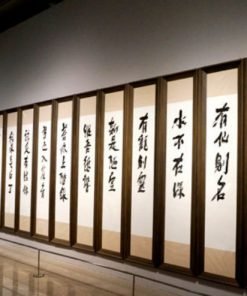 有仙則名
水不在深
有龍則靈
斯是陋室
惟吾德馨
苔痕上階綠
草色入簾青
談笑有鴻儒
往來無白丁